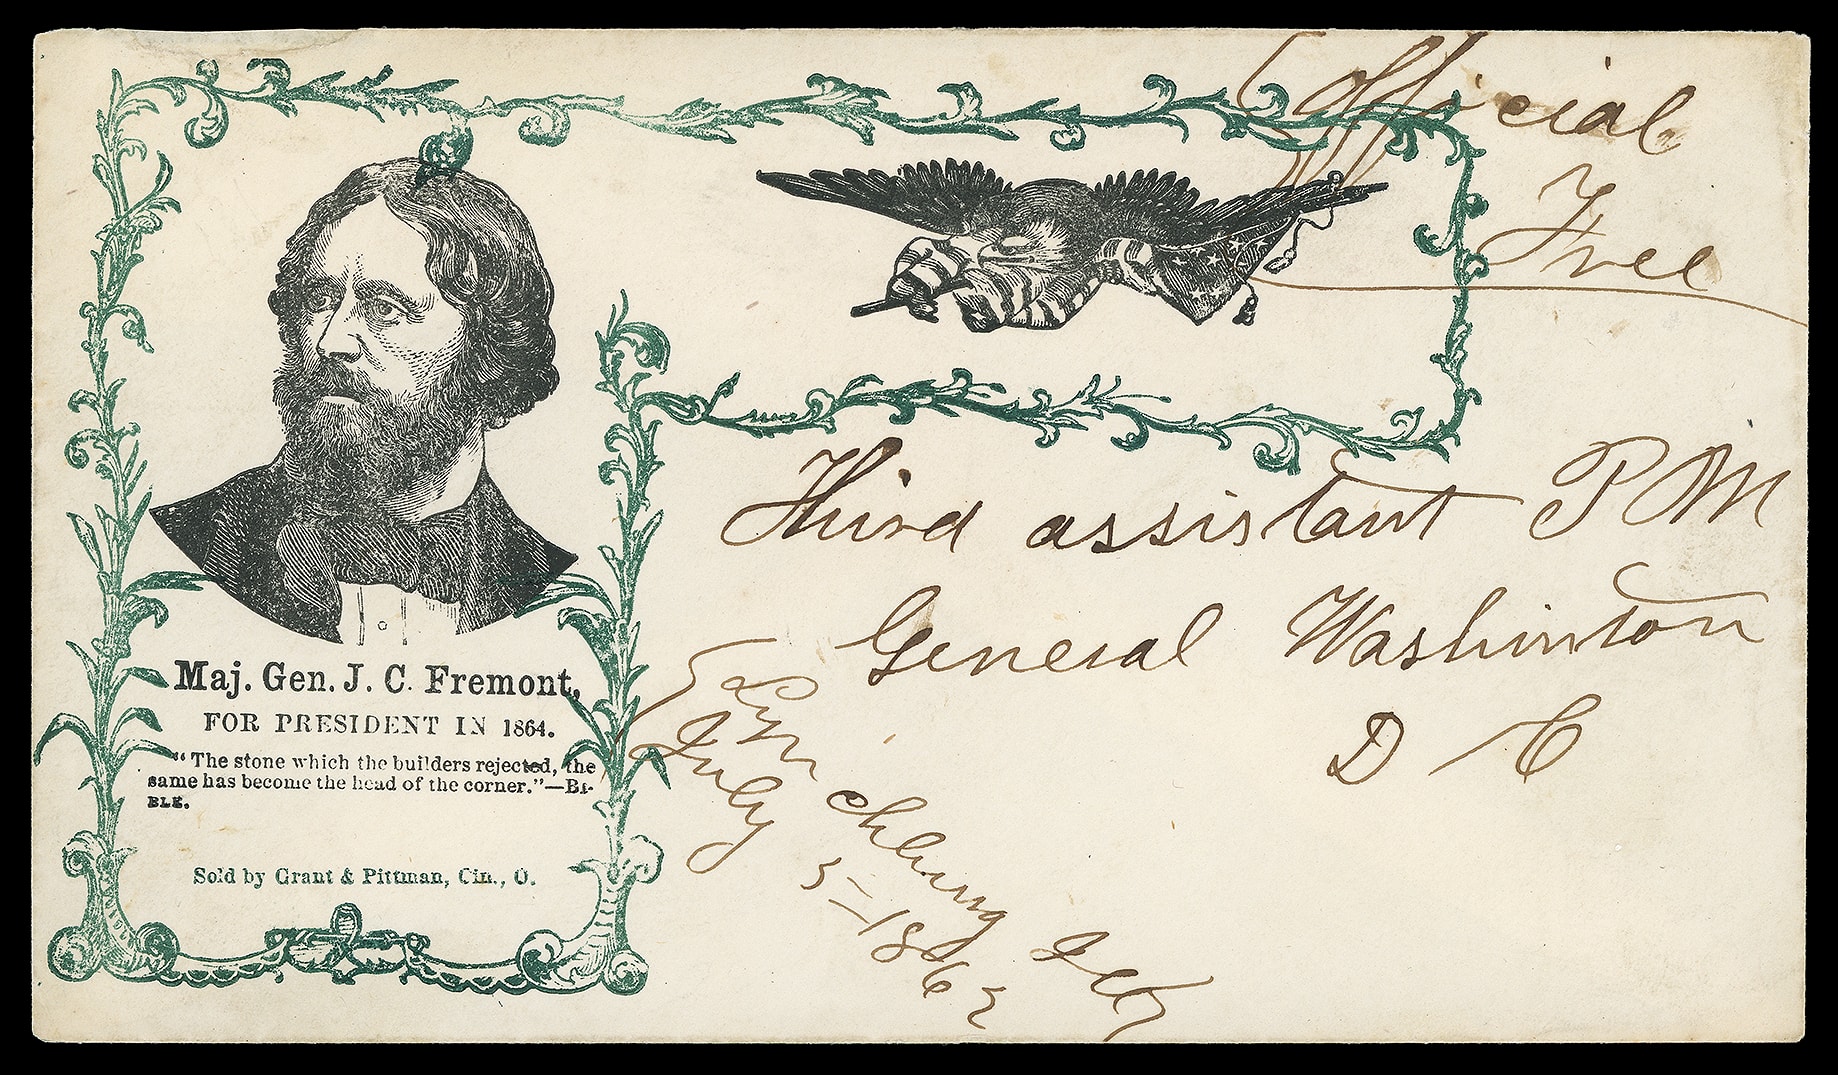 Official
Free
Maj. Gen. J. C. Fremont,
FOR PRESIDENT IN 1864.
"The stone which the builders rejected, the
same has become the head of the corner."—BI-
BLE.
Sold by Grant & Pittman, Cin., O.
Third assistant P M
General Washinton
D C
Lyn chburg
July 5–1862